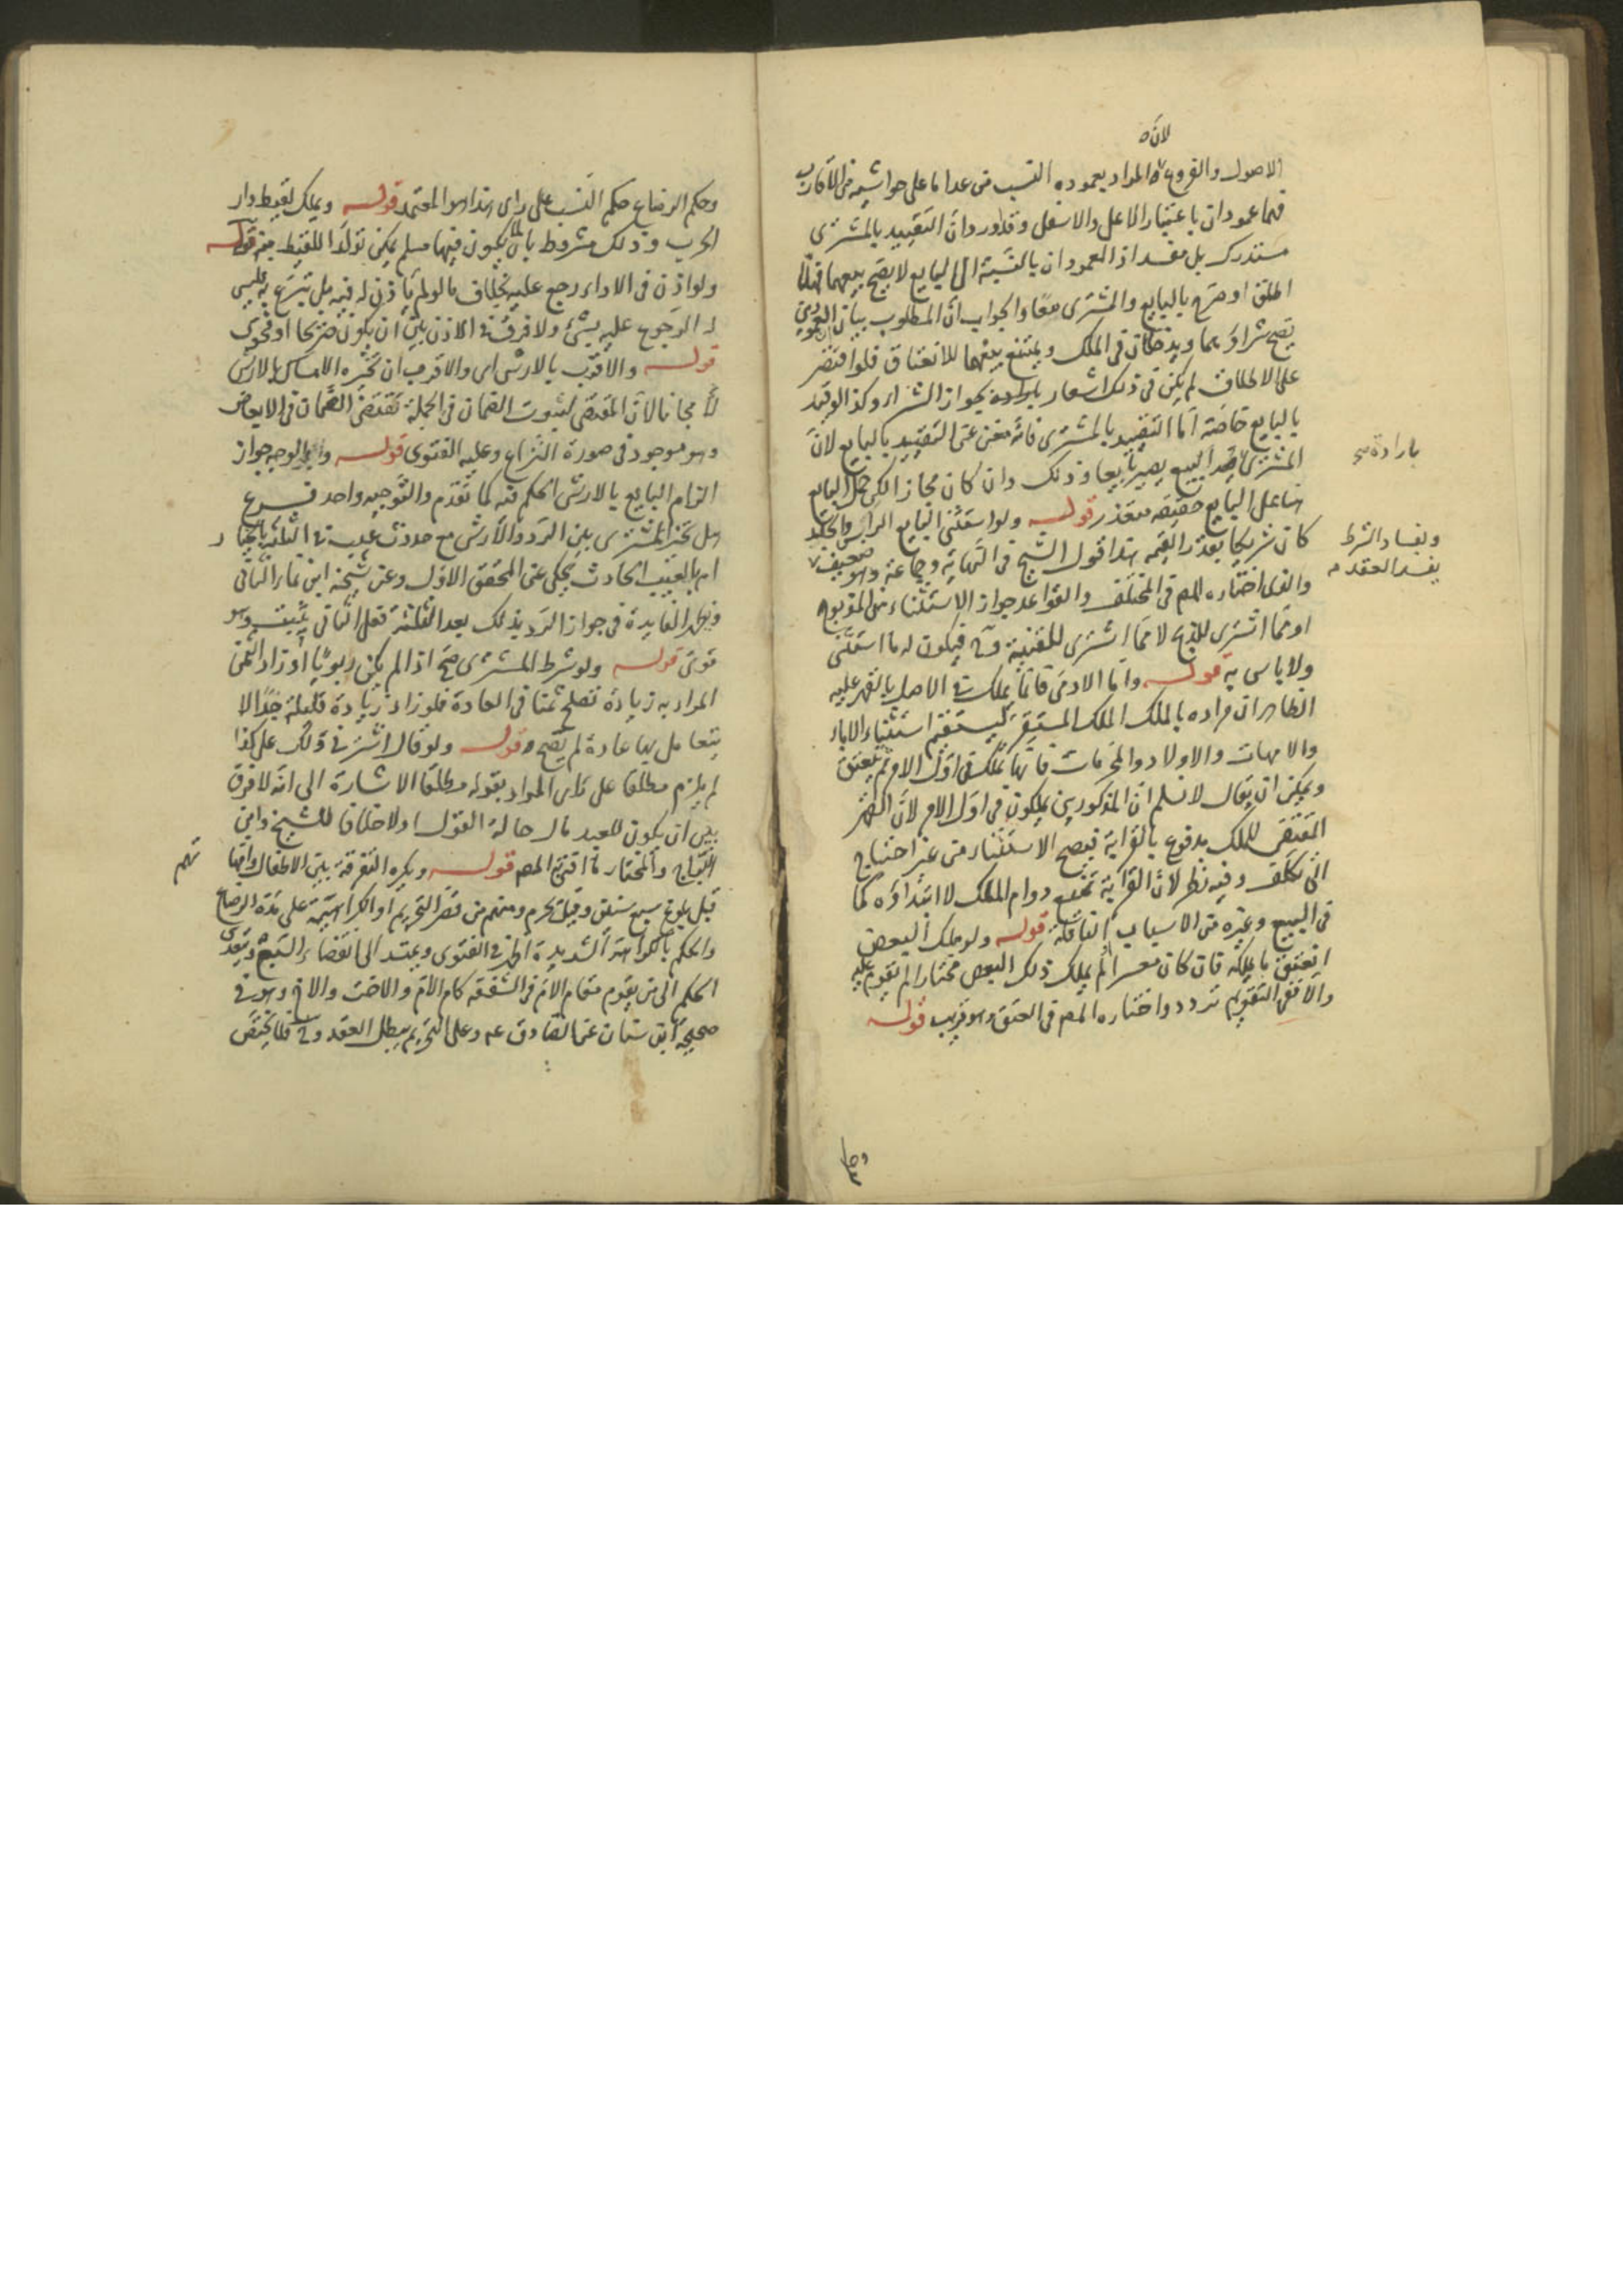 لانه
الاصول والفروع المراد بعموديه النسب من عدا ما على حواشيه من الاقارب
فهما عمودان باعتبار الاعلى والاسفل وقد اورد ان التقييد بالمشترى
مستدرك بل مفسد اذ العمودان بالنسبة الى البايع لا يصح بيعهما فهلا
اطلق او صرح بالبايع والمشترى معا والجواب ان المطلوب بيان العمودين
يصح شراؤهما ويدخلان فى الملك ويمتنع بيعهما للانعتاق فلو اقتصر
على الاطلاق لم يكن فى ذلك اشعار بارادة بجواز الشراء وكذا لو قيد
بالبايع خاصة اما التقييد بالمشترى فانه مغن عن التقييد بالبايع لان
المشترى اذا البيع يصير بايعا وذلك وان كان مجازا لكن حمل البايع
هنا على البايع حقيقة متعذر قوله ولو استثنى البايع الراس والجلد
كان شريكا بقدر القيمه هذا قول الشيخ فى النهاية وجماعة وهو ضعيف
والذى اختاره المص فى المختلف والقواعد جواز الاستثناء من المذبوح
او مما اشترى للذبح لا مما اشترى للقنية وح فيكون له ما استثنى
ولا باس به قوله واما الادمى فانما يملك فى الاصل بالقهر عليه
الظاهر ان مراده بالملك الملك المستقر ليستقيم استثناء الاباء
والامهات والاولاد والمحرمات فانها تملك فى اول الامر ثم تنعتق
ويمكن ان يقال لا نسلم ان المذكورين يملكون فى اول الامر لان القهر
المقتضى للملك مدفوع بالقرابة فيصح الاستثناء من غير احتياج
الى تكلف وفيه نظر لان القرابة تمنع دوام الملك لا ابتداؤه كما
فى البيع وغيره من الاسباب الناقلة قوله ولو ملك البعض
انعتق ما يملكه فان كان معسرا او لم يملك ذلك البعض مختارا لم يقوم عليه
والا ففى التقويم تردد واختاره المص فى العتق وهو قريب قوله
بارادة صح
وبفساد الشرط
يفسد العقد م
وحكم الرضاع حكم النسب على راى هذا هو المعتمد قوله ويملك لقيط دار
الحرب وذلك مشروط بان لا يكون فيها مسلم يمكن تولد اللقيط منه قوله
ولو اذن فى الاداء رجع عليه بخلاف ما لو لم ياذن له فيه بل تبرع به فليس
له الرجوع عليه بشئ ولا فرق فى الاذن بين ان يكون صريحا او فحوى
قوله والاقرب بالارش اى والاقرب ان تخيره الامساك بالارش
لا مجانا لان المقتضى لثبوت الضمان فى الجملة تقتضى الضمان فى الابعاض
وهو موجود فى صورة النزاع وعليه الفتوى قوله والوجه جواز
الزام البايع بالارش الحكم فيه كما تقدم والتوجيه واحد فرع
هل تخير المشترى بين الرد والارش مع حدوث عيب فى الثلثه بالخيار
ام بالعيب الحادث يحكى عن المحقق الاول وعن شيخه ابن نما الثانى
ويظهر الفايدة فى جواز الرد بذلك بعد الثلثه فعلى الثانى يثبت وهو
قوى قوله ولو شرط المشترى صح اذا لم يكن ربويا او زاد الثمن
المراد به زيادة تصلح ثمنا فى العادة فلو زاد زيادة قليلة جدا لا
يتعامل بها عادة لم يصح قوله ولو قال اشترنى ولك على كذا
لم يلزم مطلقا على راى المراد بقوله مطلقا الاشارة الى انه لا فرق
بين ان يكون للعبد مال حالة القول او لا خلافا للشيخ وابن
البراج والمختار ما افتى به المص قوله ويكره التفرقة بين الاطفال وامهاتهم
قبل بلوغ سبع سنين وقيل يحرم ومنهم من قصر التحريم او الكراهية على مدة الرضاع
والحكم بالكراهة الشديدة اظهر فى الفتوى ويمتد الى انقضاء السبع ويتعدى
الحكم الى من يقوم مقام الام فى الشفقه كام الام والاخت والاخ وهو فى
صحيحة ابن سنان عن الصادق عم وعلى التحريم يبطل العقد وح فلا يختص